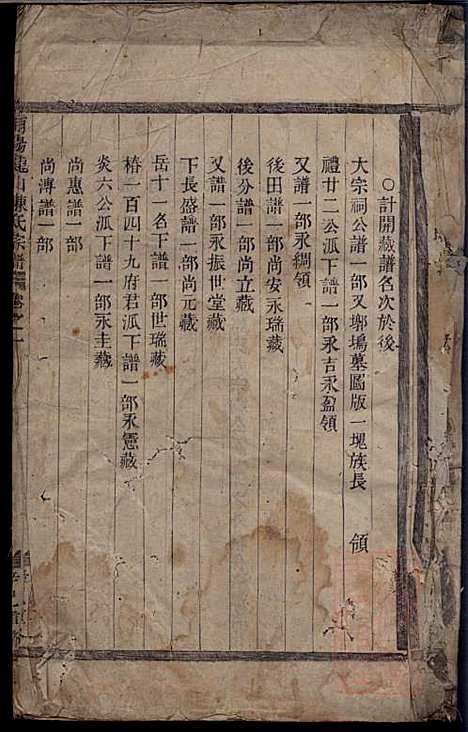 ○計開藏譜名次於後
大宗祠公譜一部又鄔塢墓圖版一塊族長 領
禮廿二公派下譜一部永吉永盈領
又譜一部永綢領
後田譜一部尚安永瑞藏
後分譜一部尚立藏
又譜一部永振世堂藏
下長盛譜一部尚元藏
岳十一名下譜一部世瑞藏
椿一百四十九府君派下譜一部永憲藏
炎六公派下譜一部永圭藏
尚惠譜一部
尚溥譜一部
陽龍山陳氏宗譜 卷之一